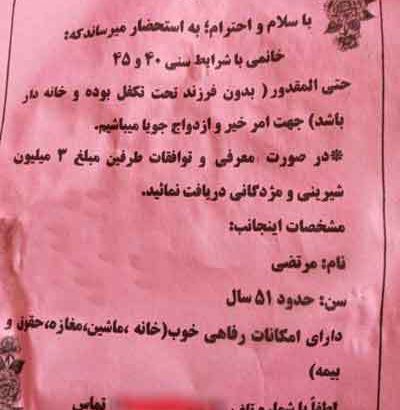 با سلام و احترام؛ به استحضار میرساندکه:
خانمی با شرایط سنی ۴۰ و ۴۵
حتی المقدور( بدون فرزند تحت تکفل بوده و خانه دار
باشد) جهت امر خیر و ازدواج جویا میباشیم.
*در صورت معرفی و توافقات طرفین مبلغ ۳ میلیون
شیرینی و مژدگانی دریافت نمائید.
مشخصات اینجانب:
نام: مرتضی
سن: حدود ۵۱ سال
دارای امکانات رفاهی خوب(خانه ،ماشین،مغازه،حقوق و
بیمه)
لطفاً با شماره تلفن تماس